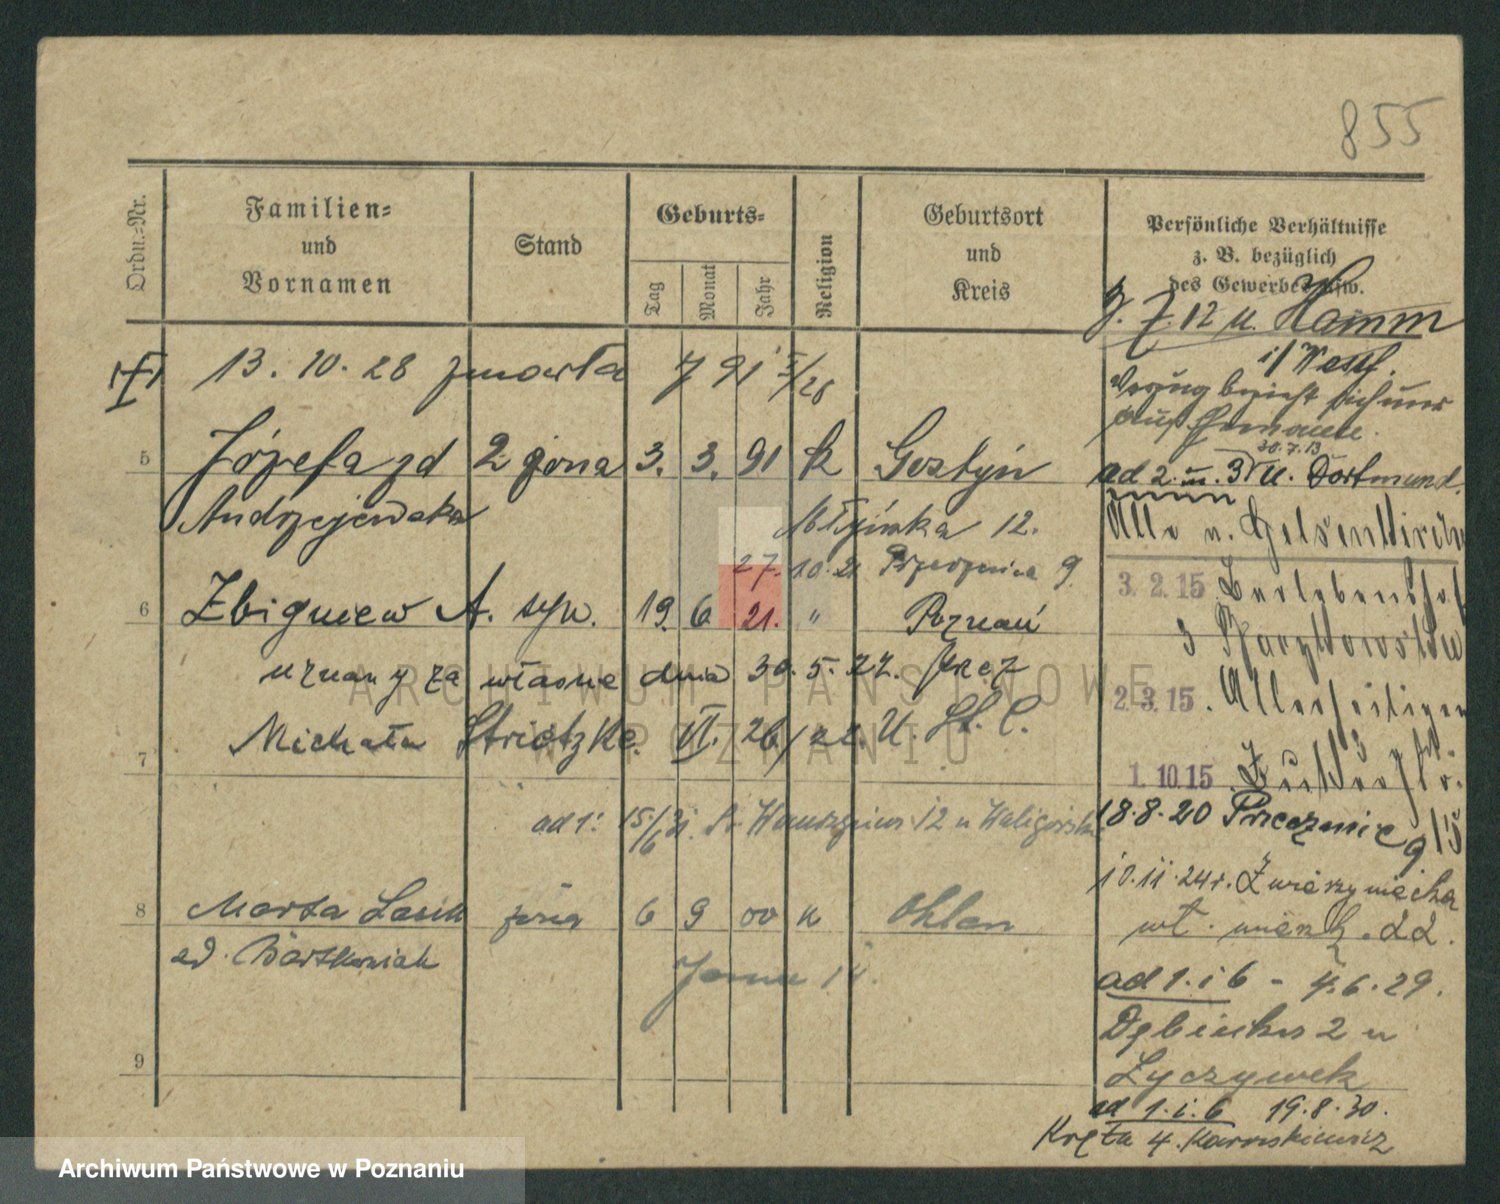 855
Ordn.-Nr.
Familien-
und
Vornamen
Stand
Geburts-
Tag
Monat
Jahr
Religion
Geburtsort
und
Kreis
Persönliche Verhältnisse
z. B. bezüglich
des Gewerbes usw.
7.12 u. Hamm
i/ Westf.
13. 10. 28 zmarła 7 91 /28
Verzug bezieht sich nur
auf
30.7.13
5 Józefa zd 2 żona 3. 3. 91 k Gostyń
ad 2. u. 3 u. Dortmund.
Andrzejewska
Młyńska 12.
Alle n. Gelsenkirchen
27. 10. 21 9
3. 2. 15
6 Zbigniew A. syn. 19. 6 21. " Poznań
3
uznany za własne dnia 30. 5. 22. przez
2. 3. 15. Allerheiligen
Michała Strietzke. VI. 26/22. U. St. C.
7
1. 10. 15
ad 1: 15/6 21. 12 u Waligórski
18. 8. 20 Przecznica 9
10. 11. 24 r.
8 Marta Lasik żona 6 9 00 k Ohlen
22.
zd. Bartkowiak
14.
ad 1. i 6 - 4. 6. 29.
Dębińska 2 u
9
Łyczywek
ad 1. i. 6 19. 8. 30.
Kręta 4. Karaskiewicz
ARCHIWUM PAŃSTWOWE
W POZNANIU
Archiwum Państwowe w Poznaniu